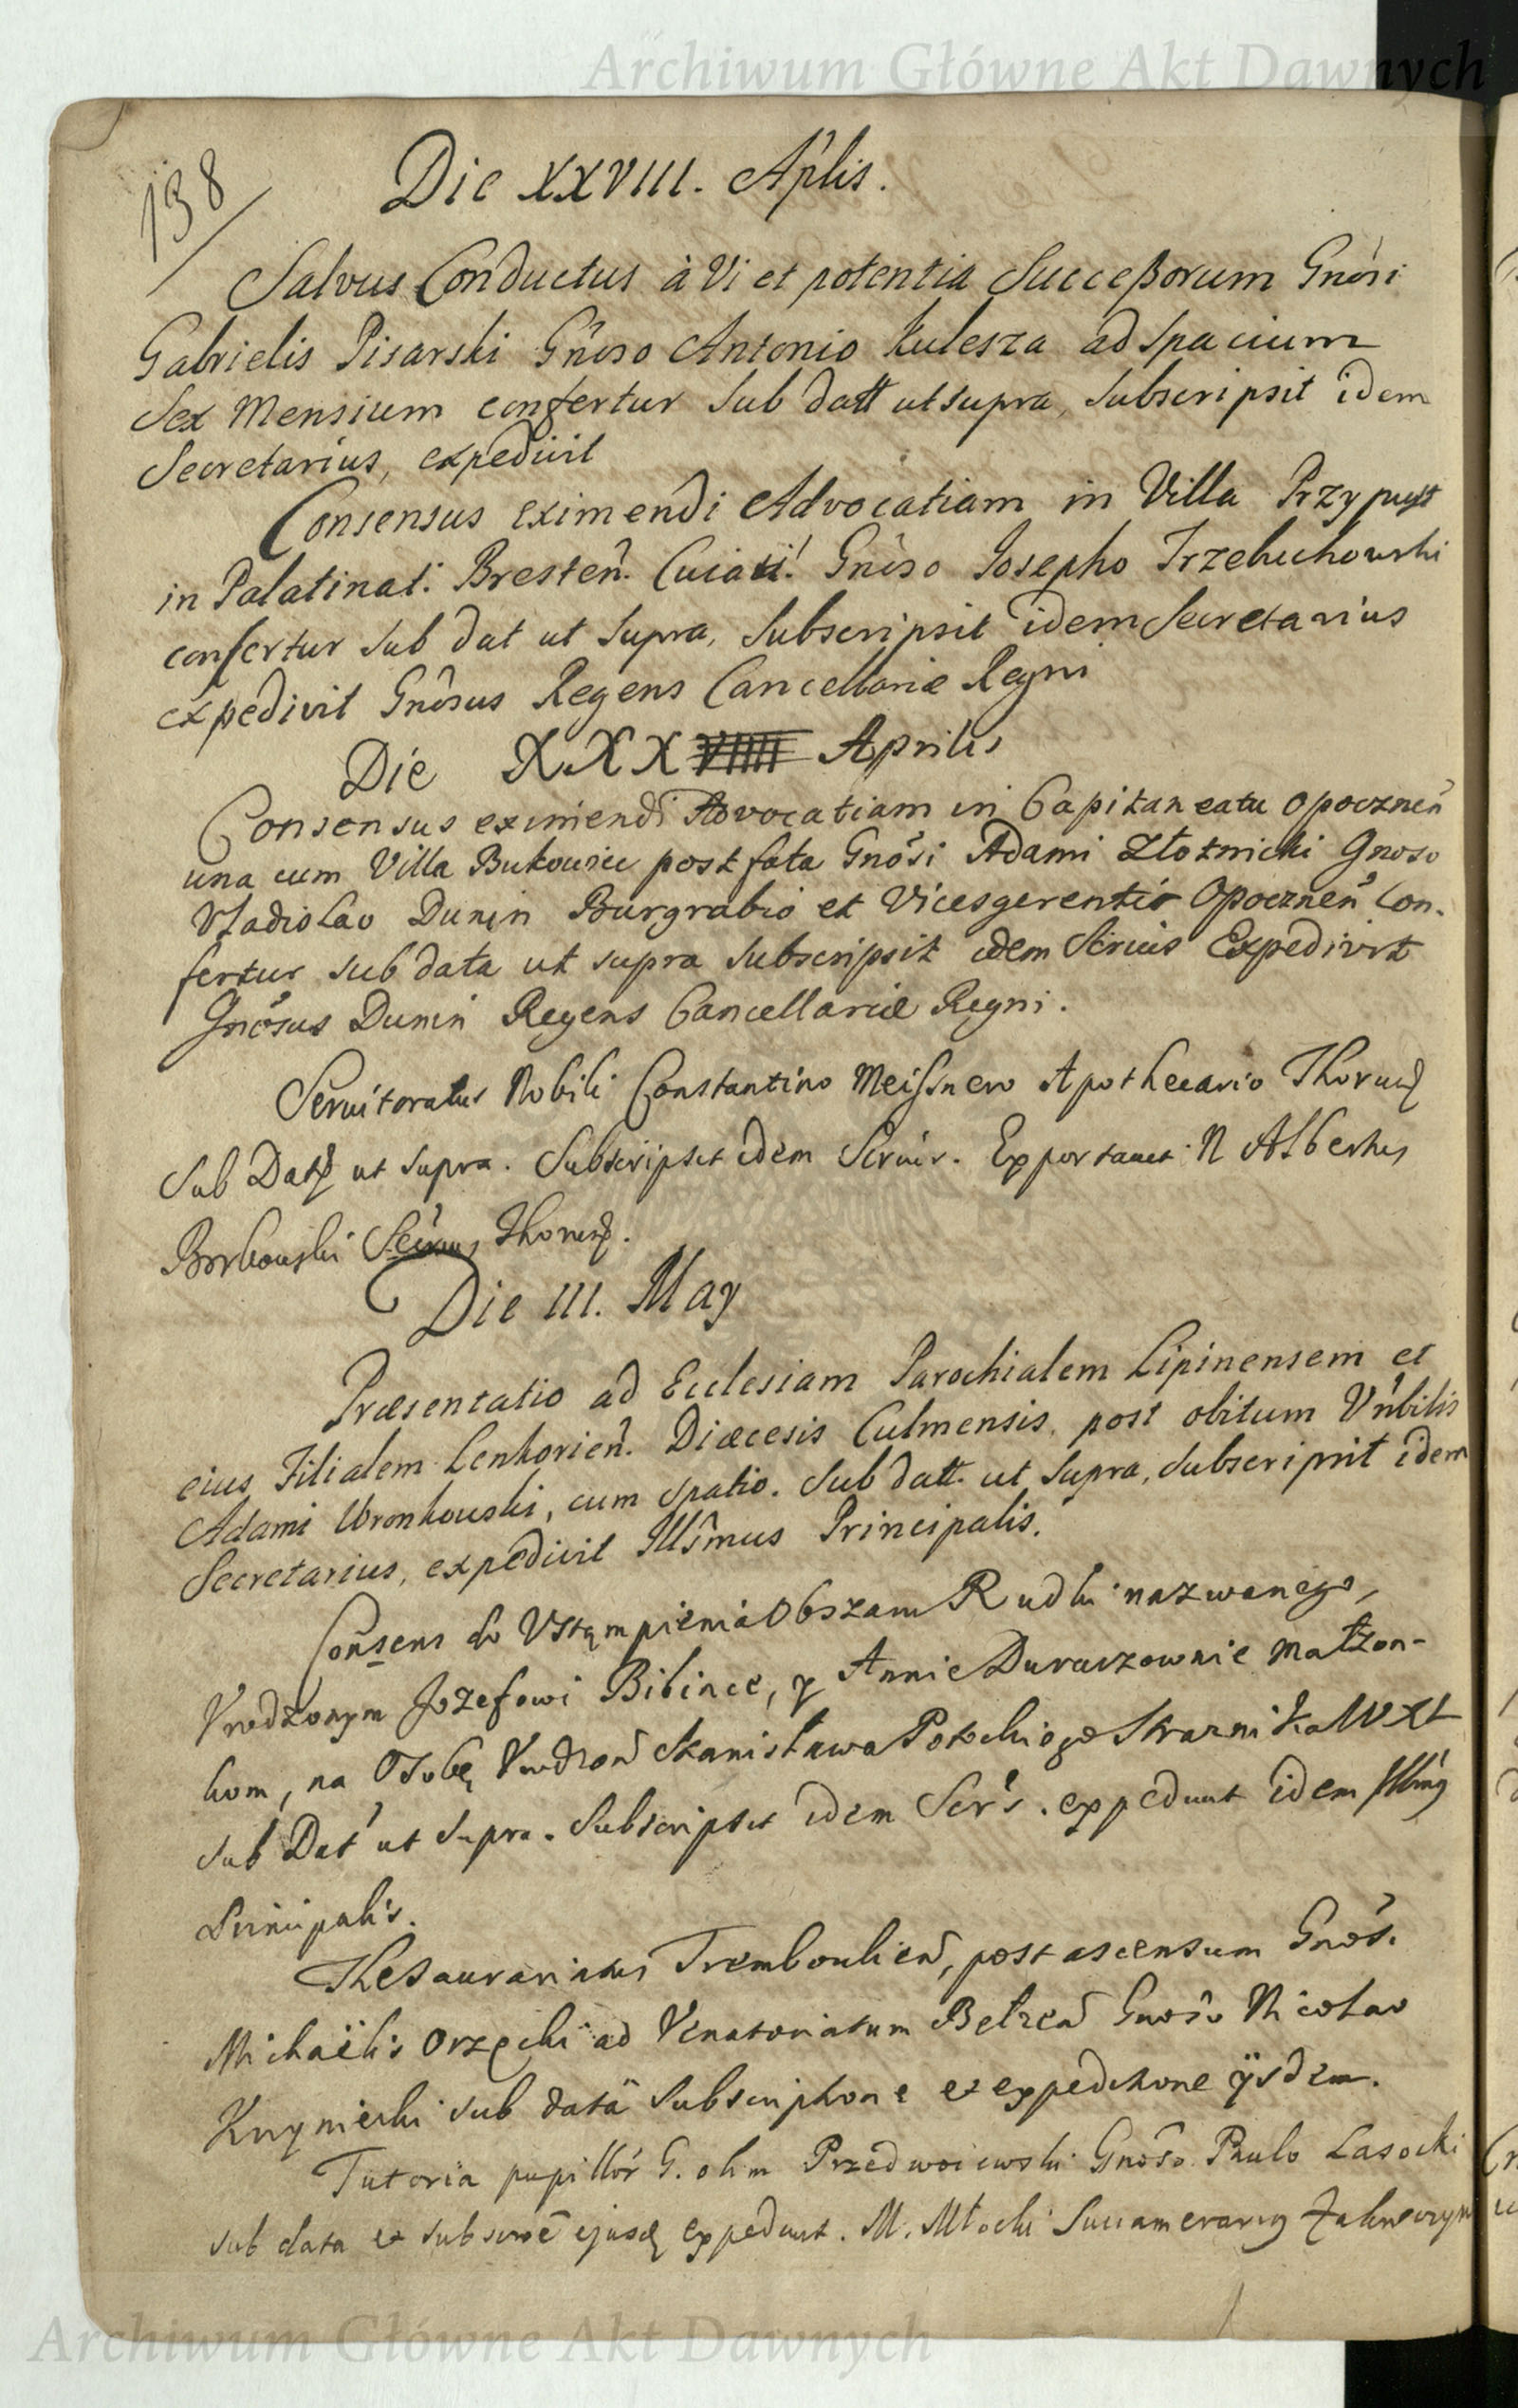 Archiwum Główne Akt Dawnych
138
Die XXVIII. Aplis.
Salvus Conductus à Vi et potentia Successorum Gnosi
Gabrielis Pisarski Gnoso Antonio Kulesza ad Spacium
Sex Mensium confertur Sub datt ut supra, Subscripsit idem
Secretarius, expedivit
Consensus eximendi Advocatiam in Villa Przypust
in Palatinat: Bresten. Cuiav: Gnoso Josepho Trzebuchowski
confertur sub dat ut supra, Subscripsit idem Secretarius
expedivit Gnosus Regens Cancellariæ Regni
Die XXX Aprilis
Consensus eximendi Advocatiam in Capitaneatu Opocznen
una cum Villa Bukowiec post fata Gnosi Adami Złotnicki Gnoso
Vladislao Dunin Burgrabio et Vicesgerenti Opocznen Con-
fertur sub data ut supra subscripsit idem Scrius Expedivit
Gnosus Dunin Regens Cancellariæ Regni.
Servitoratus Nobili Constantino Meissnero Apothecario Thorun
Sub Dat ut supra. Subscripsit idem Secrius. Exportavit N Albertus
Borkowski Thorun.
Die III. May
Præsentatio ad Ecclesiam Parochialem Lipinensem et
eius Filialem Lenkorien. Diæcesis Culmensis, post obitum Vnbilis
Adami Wronkowski, cum spatio. Sub datt. ut supra, subscripsit idem
Secretarius, expedivit Illsmus Principalis.
Consens do Vstąmpienia Obszaru Rudki nazwanego,
Vrodzonym Jozefowi Bibince, y Annie Duraczownie małżon-
kom, na Osobę Vrodzon Stanisława Potockiego Strażnika WXL
sub Dat ut supra. Subscripsit idem Scr's. expedivit idem Illmus
Principalis.
Thesaurariatus Trembowlien, post ascensum Gnos.
Michaëlis Orzęcki ad Venatoriatum Bełzen Gnoso Nicolao
Krynicki sub datâ subscriptione et expeditione ijsdem.
Tutoria pupillor G. olim Przedwoiewski Gnoso Paulo Lasocki
sub data et subscrone ejusd expedivit. M. Młocki Succamerarius Zakroczym
Archiwum Główne Akt Dawnych